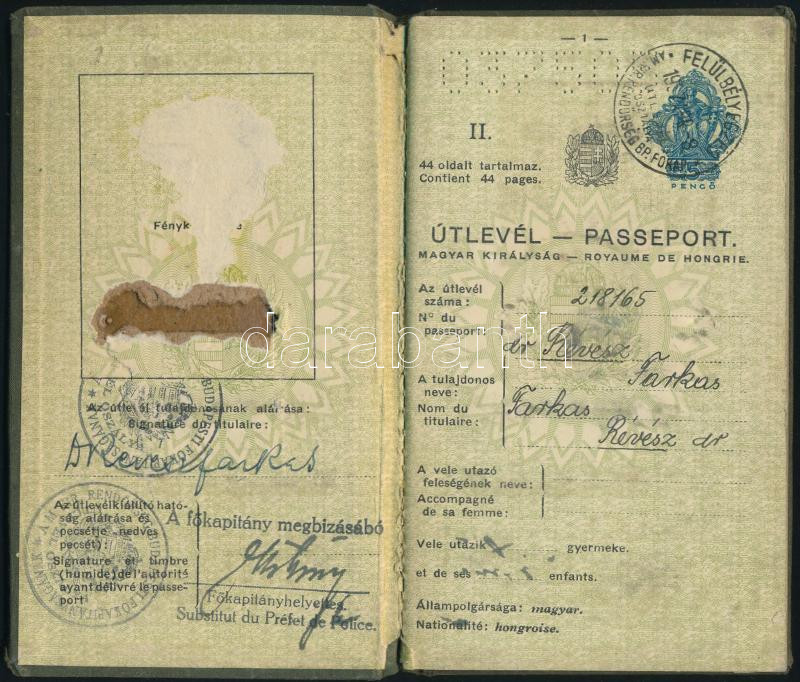 Fényk
Az útlevél tulajdonosának aláírása:
Signature du titulaire:
Dr Révész Farkas
Az útlevélkiállító ható-
ság aláírása és
pecsétje nedves
pecsét):
Signature et timbre
(humide) de l'autorité
ayant délivré le passe-
port
A főkapitány megbízásábó
Főkapitányhelyettes.
Substitut du Préfet de Police.
— 1 —
II.
44 oldalt tartalmaz.
Contient 44 pages.
FELÜLBÉLYEG
BP. FŐKAP.
PENGŐ
ÚTLEVÉL — PASSEPORT.
MAGYAR KIRÁLYSÁG — ROYAUME DE HONGRIE.
Az útlevél
száma:
218165
N° du
passeport:
dr Révész
Farkas
A tulajdonos
neve:
Nom du
titulaire:
Farkas
Révész dr
A vele utazó
feleségének neve:
Accompagné
de sa femme:
Vele utazik gyermeke.
et de ses enfants.
Állampolgársága: magyar.
Nationalité: hongroise.
darabanth